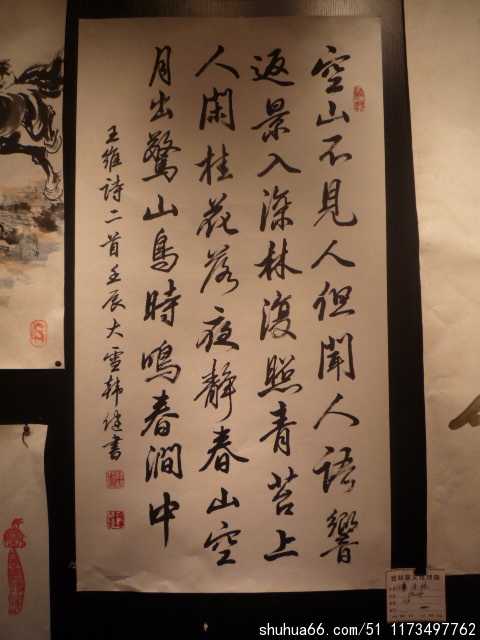 空山不見人但聞人語響
返景入深林復照青苔上
人閑桂花落夜靜春山空
月出驚山鳥時鳴春澗中
王維詩二首壬辰大雪韩健書
shuhua66.com/51 1173497762